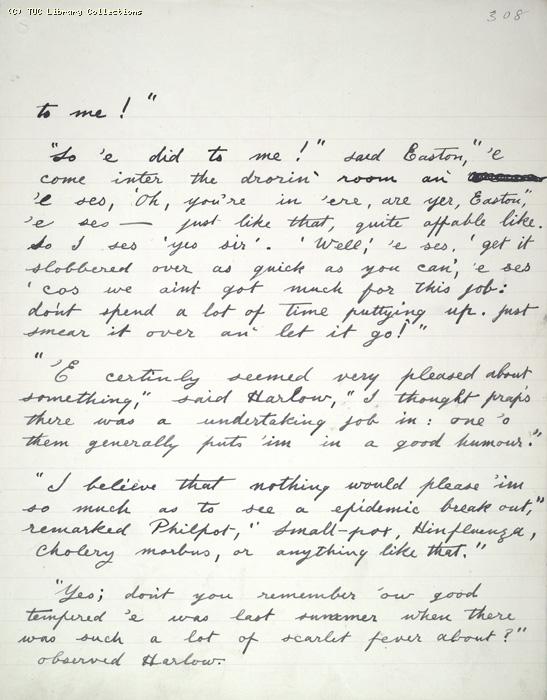 (c) TUC Library Collections
308
to me!"
"So 'e did to me!" said Easton, "'e
come inter the drorin' room an'
'e ses, 'Oh, you're in 'ere, are yer, Easton,"
'e ses — just like that, quite affable like.
So I ses 'yes sir'. 'Well,' 'e ses, 'get it
slobbered over as quick as you can,' 'e ses
'cos we aint got much for this job:
don't spend a lot of time puttying up. just
smear it over an' let it go!"
"'E certinly seemed very pleased about
something," said Harlow, "I thought prap's
there was a undertaking job in: one 'o
them generally puts 'im in a good humour."
"I believe that nothing would please 'im
so much as to see a epidemic break out,"
remarked Philpot, "Small-pox, Hinfluenza,
Cholery morbus, or anything like that."
"Yes; don't you remember 'ow good
tempered 'e was last summer when there
was such a lot of scarlet fever about?"
observed Harlow.